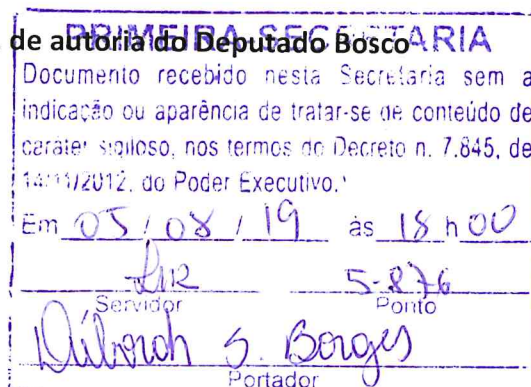 PRIMEIRA SECRETARIA
de autoria do Deputado Bosco
Documento recebido nesta Secretaria sem a
indicação ou aparência de tratar-se de conteúdo de
caráter sigiloso, nos termos do Decreto n. 7.845, de
14/11/2012, do Poder Executivo.
Em 05/08/19 às 18h00
5-876
Servidor Ponto
S. Borges
Portador